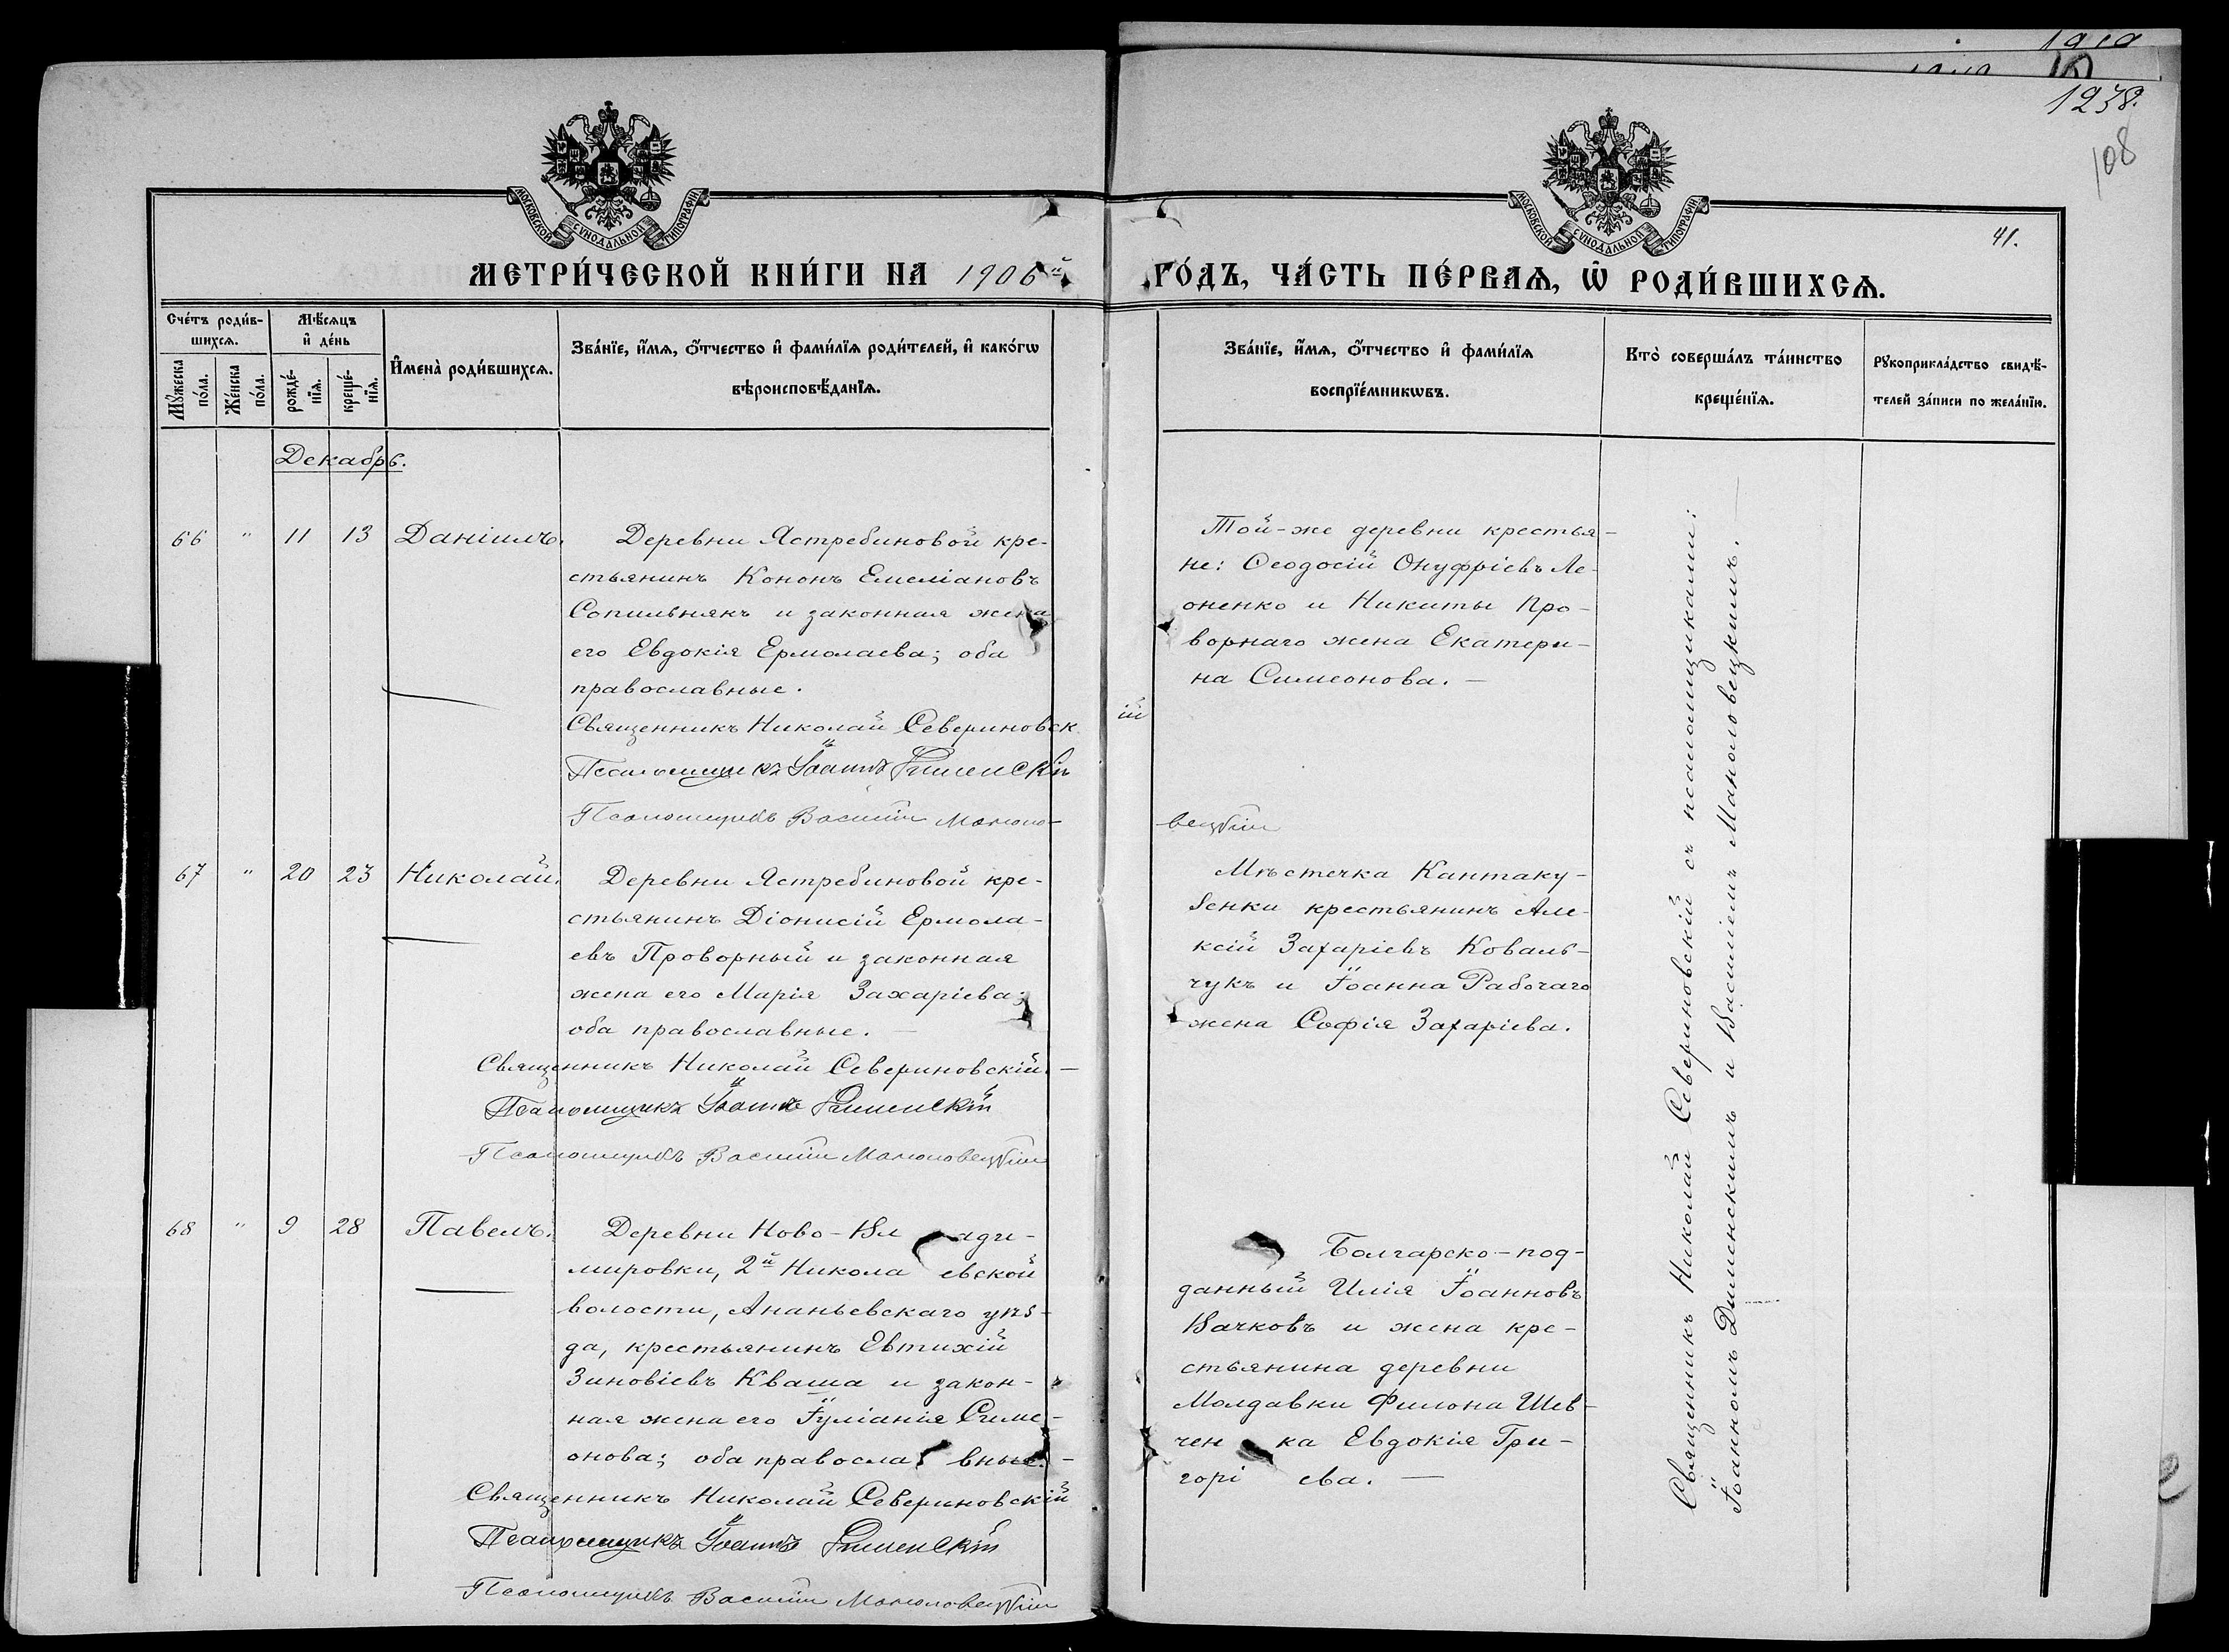 1238.
108
41.
МОСКОВСКОЙ СУНОДАЛЬНОЙ ТИПОГРАФІИ
МОСКОВСКОЙ СУНОДАЛЬНОЙ ТИПОГРАФІИ
МЕТРИ́ЧЕСКОЙ КНИ́ГИ НА 1906й
ГО́ДЪ, ЧА́СТЬ ПЕ́РВАѦ, Ѡ РОДИ́ВШИХСѦ.
Сче́тъ роди́в-
шихсѧ.
Мꙋжеска по́ла.
Же́нска по́ла.
Мѣ́сѧцъ
и҆ де́нь
рожде́-
нїѧ.
креще́-
нїѧ.
И҆мена̀ роди́вшихсѧ.
Зва́нїе, и҆́мѧ, ѻ҆́тчество и҆ фами́лїѧ роди́телей, и҆ како́гѡ
вѣроисповѣ́данїѧ.
Зва́нїе, и҆́мѧ, ѻ҆́тчество и҆ фами́лїѧ
воспрїе́мникѡвъ.
Кто̀ соверша́лъ та́инство
креще́нїѧ.
Рꙋкоприкла́дство свидѣ́-
телей за́писи по жела́нїю.
Декабрь.
66 " 11 13 Даніилъ.
Деревни Ястребиновой кре-
стьянинъ Кононъ Емеліановъ
Сопильнякъ и законная жена
его Евдокія Ермолаева; оба
православные.
Священникъ Николай Севериновскій
Псаломщикъ Іоаннъ Дименскій
Псаломщикъ Василій Маноло-
вецкій
Той-же деревни крестья-
не: Ѳеодосій Онуфріевъ Ле-
оненко и Никиты Про-
ворнаго жена Екатери-
на Симеонова. —
67 " 20 23 Николай.
Деревни Ястребиновой кре-
стьянинъ Діонисій Ермола-
евъ Проворный и законная
жена его Марія Захаріева;
оба православные. —
Священникъ Николай Севериновскій. —
Псаломщикъ Іоаннъ Дименскій
Псаломщикъ Василій Маноловецкій
Мѣстечка Кантаку-
зенки крестьянинъ Але-
ксій Захаріевъ Коваль-
чукъ и Іоанна Рабочаго
жена Софія Захаріева.
68 " 9 28 Павелъ.
Деревни Ново-Влади-
мировки, 2й Николаевской
волости, Ананьевскаго уѣз-
да, крестьянинъ Евтихій
Зиновіевъ Кваша и закон-
ная жена его Іуліанія Симе-
онова; оба православные. —
Священникъ Николай Севериновскій
Псаломщикъ Іоаннъ Дименскій
Псаломщикъ Василій Маноловецкій
Болгарско-под-
данный Илія Іоанновъ
Вачковъ и жена кре-
стьянина деревни
Молдавки Филона Шев-
ченка Евдокія Гри-
горіева. —
Священникъ Николай Севериновскій съ псаломщиками:
Іоанномъ Дименскимъ и Василіемъ Маноловецкимъ.